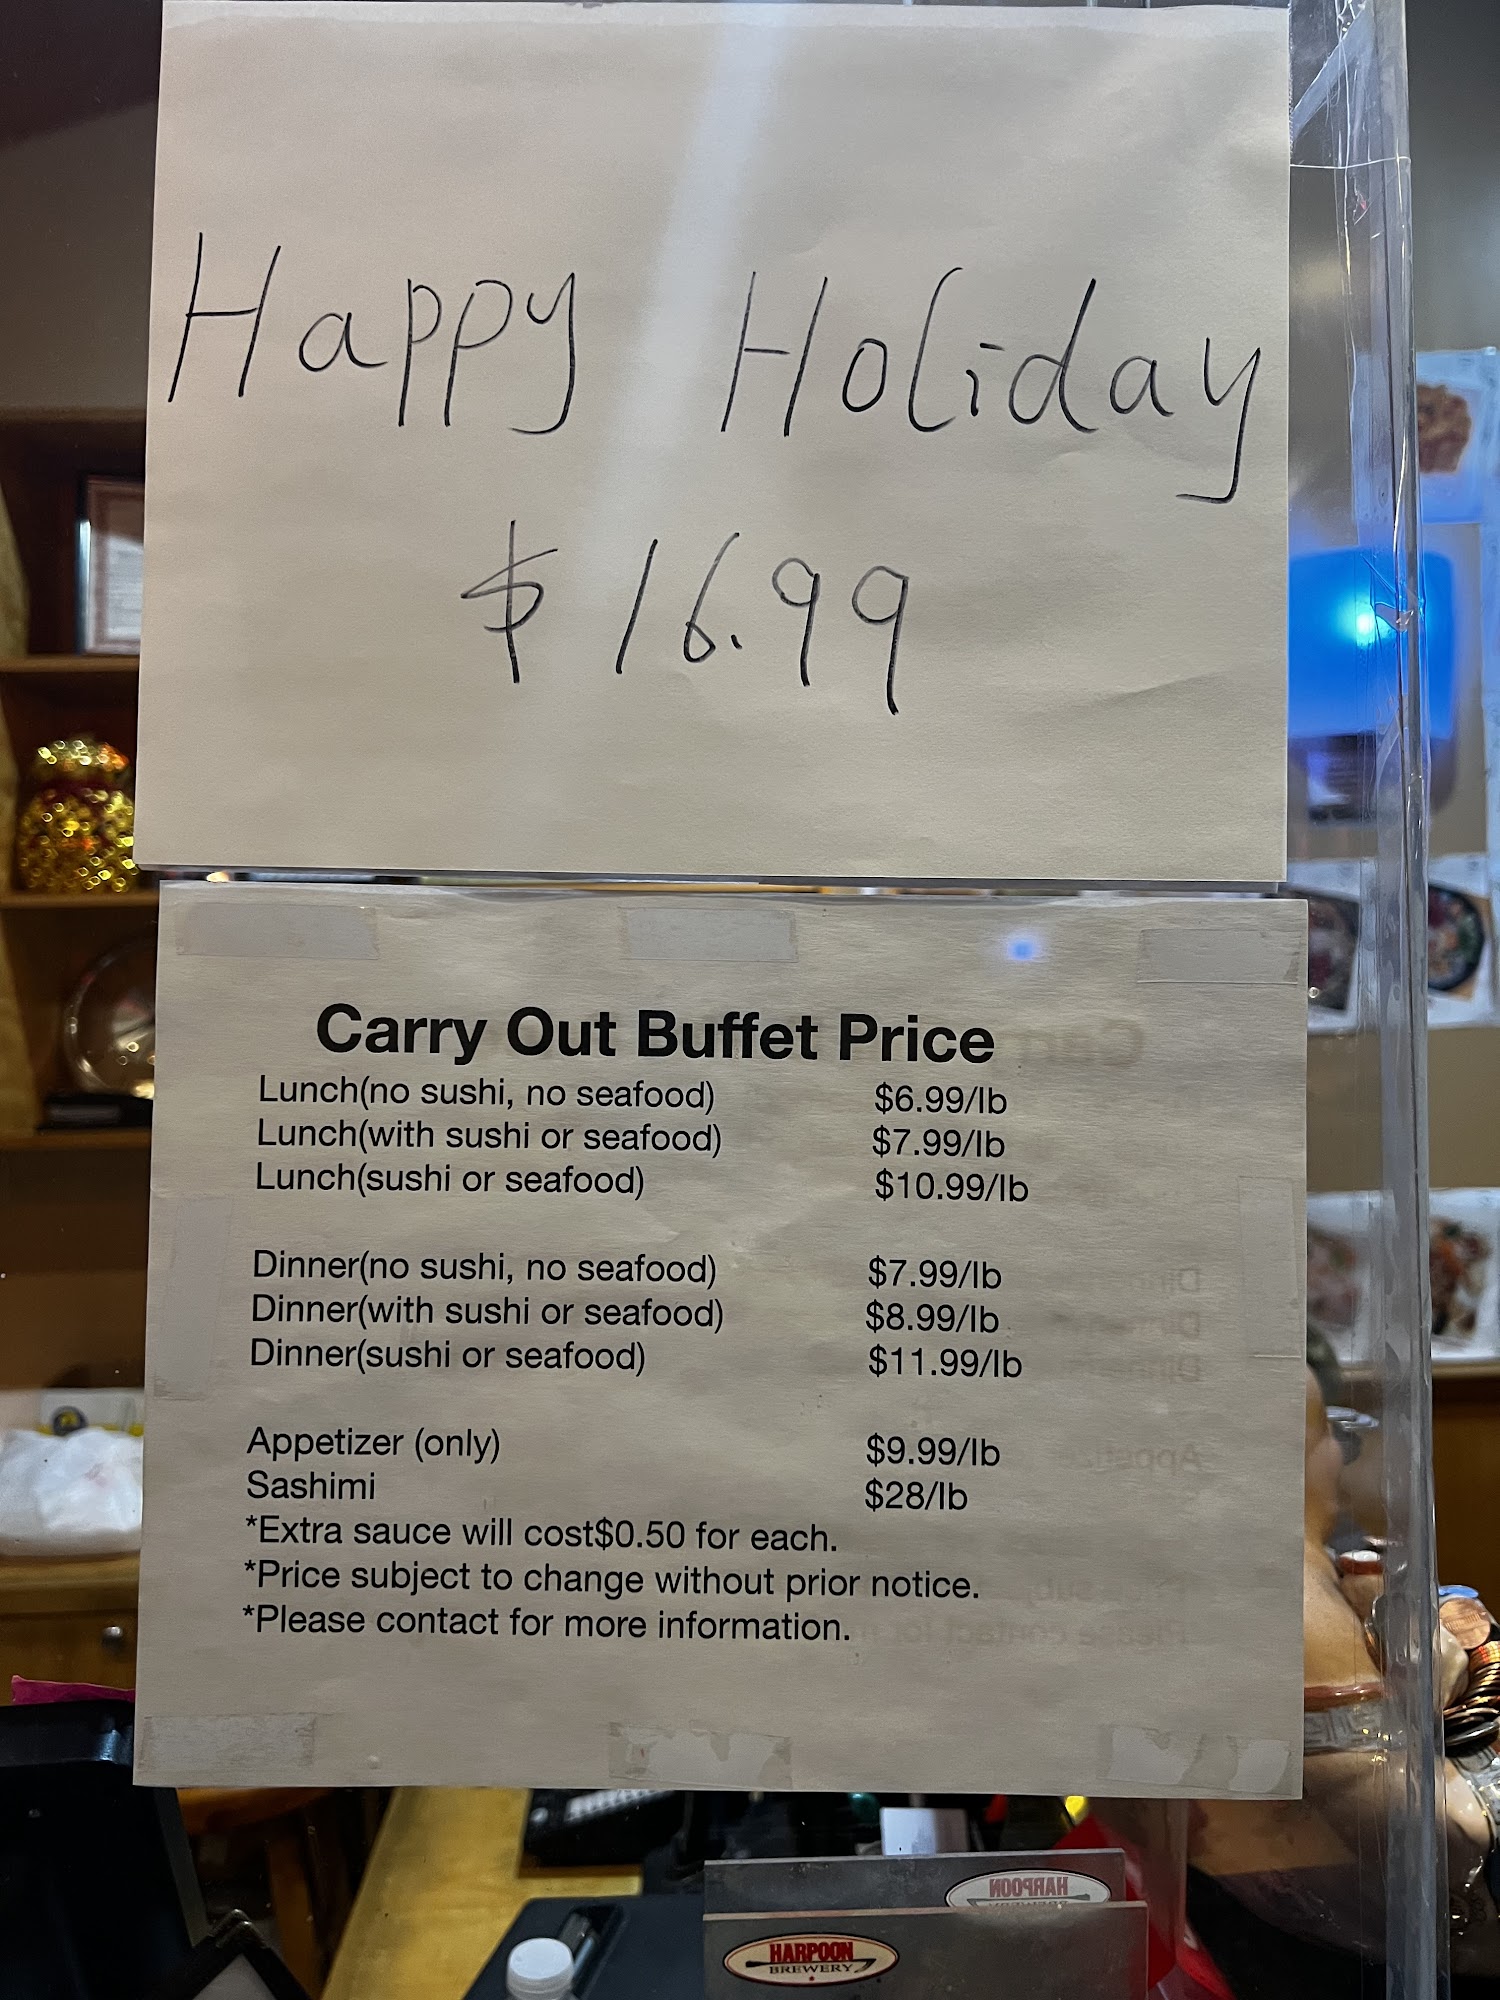 Happy Holiday
$16.99
Carry Out Buffet Price
Lunch(no sushi, no seafood) $6.99/lb
Lunch(with sushi or seafood) $7.99/lb
Lunch(sushi or seafood) $10.99/lb
Dinner(no sushi, no seafood) $7.99/lb
Dinner(with sushi or seafood) $8.99/lb
Dinner(sushi or seafood) $11.99/lb
Appetizer (only) $9.99/lb
Sashimi $28/lb
*Extra sauce will cost$0.50 for each.
*Price subject to change without prior notice.
*Please contact for more information.
HARPOON
BREWERY
HARPOON
BREWERY